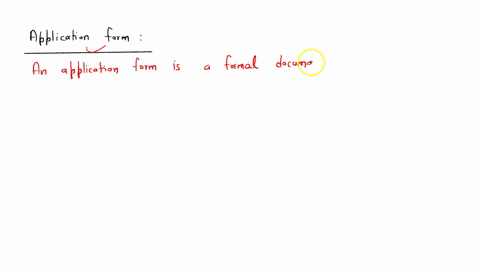 Application form :
An application form is a fomal docum